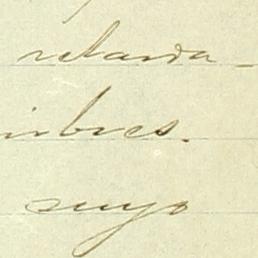 retarda-
imbres.
suyo